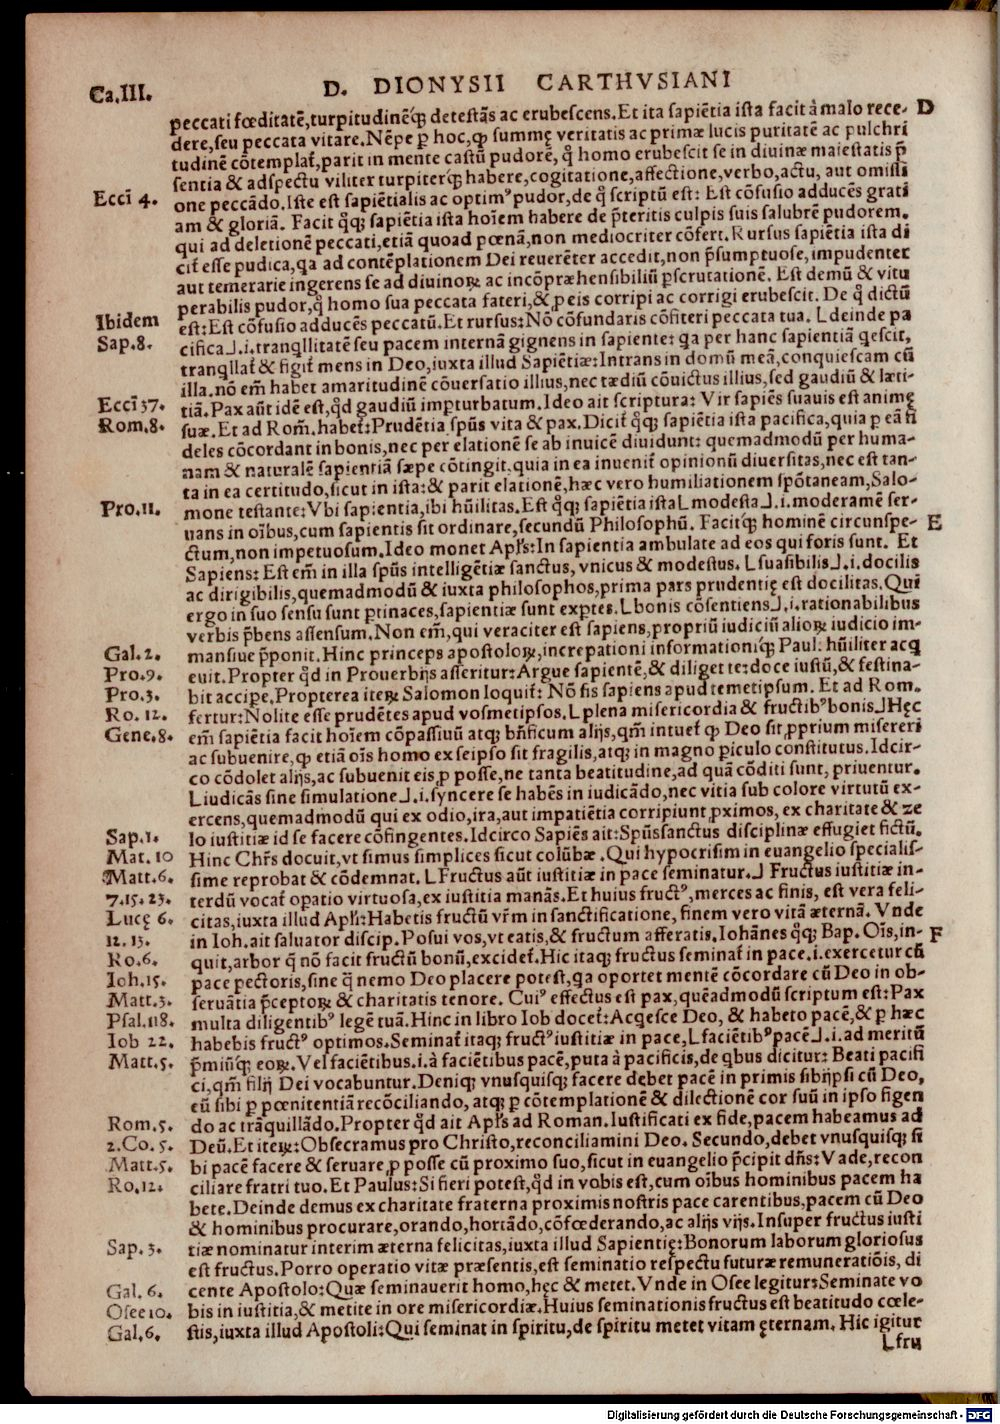 Ca.III.
D. DIONYSII CARTHVSIANI
peccati fœditatē,turpitudinēq; detestãs ac erubescens.Et ita sapiētia ista facit à malo rece- D
dere,seu peccata vitare.Nēpe ꝑ hoc,ꝙ summę veritatis ac primæ lucis puritatē ac pulchri
tudinē cōtemplat̄,parit in mente castū pudorē, q̊ homo erubescit se in diuinæ maiestatis p̄
sentia & adspectu viliter turpiterq; habere,cogitatione,affectione,verbo,actu, aut omissi
Ecci 4. one peccādo.Iste est sapiētialis ac optim⁹ pudor,de q̊ scriptū est: Est cōfusio adducēs grati
am & gloriā. Facit q̊q; sapiētia ista hoīem habere de p̄teritis culpis suis salubrē pudorem.
qui ad deletionē peccati,etiā quoad pœnā,non mediocriter cōfert.Rursus sapiētia ista di
cit̄ esse pudica,qa ad contēplationem Dei reuerēter accedit,non p̄sumptuose, impudenter
aut temerarie ingerens se ad diuinoꝝ ac incōpræhensibiliū ꝑscrutationē. Est demū & vitu
perabilis pudor,q̊ homo sua peccata fateri,& ꝓ eis corripi ac corrigi erubescit. De q̊ dictū
Ibidem est:Est cōfusio adducēs peccatū.Et rursus:Nō cōfundaris cōfiteri peccata tua. L deinde pa
Sap.8. cifica⅃.i.tranqllitatē seu pacem internā gignens in sapiente: qa per hanc sapientiā qescit,
tranqllat̄ & figit̄ mens in Deo,iuxta illud Sapiētiæ:Intrans in domū meā,conquiescam cū
illa.nō em̄ habet amaritudinē cōuersatio illius,nec tædiū cōuictus illius,sed gaudiū & læti-
Ecci 37. tiā.Pax aūt idē est,qd̊ gaudiū imꝑturbatum.Ideo ait scriptura: Vir sapiēs suauis est animę
Rom.8. suæ.Et ad Rom̄.habet̄:Prudētia spūs vita & pax.Dicit̄ q̊q; sapiētia ista pacifica,quia ꝑ eā fi
deles cōcordant in bonis,nec per elationē se ab inuicē diuidunt: quemadmodū per huma-
nam & naturalē sapientiā sæpe cōtingit,quia in ea inuenit̄ opinionū diuersitas,nec est tan-
ta in ea certitudo,sicut in ista:& parit elationē,hæc vero humiliationem spōtaneam,Salo-
Pro.11. mone testante:Vbi sapientia,ibi hūilitas.Est q̊q; sapiētia ista L modesta⅃.i.moderamē ser-
uans in oībus,cum sapientis sit ordinare,secundū Philosophū. Facitq; hominē circunspe- E
ctum,non impetuosum.Ideo monet Apl̄s:In sapientia ambulate ad eos qui foris sunt. Et
Sapiens:Est em̄ in illa spūs intelligētiæ sanctus, vnicus & modestus. L suasibilis⅃.i.docilis
ac dirigibilis,quemadmodū & iuxta philosophos,prima pars prudentię est docilitas.Qui
ergo in suo sensu sunt ꝑtinaces,sapientiæ sunt exꝑtes.L bonis cōsentiens⅃.i.rationabilibus
verbis p̄bens assensum.Non em̄,qui veraciter est sapiens,propriū iudiciū alioꝝ iudicio im-
Gal.2. mansiue p̄ponit.Hinc princeps apostoloꝝ,increpationi informationiq; Paul. hūiliter acq
Pro.9. euit.Propter qd̊ in Prouerbijs asseritur:Argue sapientē,& diliget te:doce iustū,& festina-
Pro.3. bit accipe.Propterea iteꝝ Salomon loquit̄: Nō sis sapiens apud temetipsum. Et ad Rom.
Ro. 12. fertur:Nolite esse prudētes apud vosmetipsos.L plena misericordia & fructib⁹ bonis.⅃Hęc
Gene.8. em̄ sapiētia facit hoīem cōpassiuū atq; bn̄ficum alijs,qm̄ intuet̄ ꝙ Deo sit ꝓprium misereri
ac subuenire,ꝙ etiā oīs homo ex seipso sit fragilis,atq; in magno ꝑiculo constitutus.Idcir-
co cōdolet alijs,ac subuenit eis ꝓ posse,ne tanta beatitudine,ad quā cōditi sunt, priuentur.
L iudicās sine simulatione⅃.i.syncere se habēs in iudicādo,nec vitia sub colore virtutū ex-
ercens,quemadmodū qui ex odio,ira,aut impatiētia corripiunt ꝓximos, ex charitate & ze
Sap.1. lo iustitiæ id se facere cōfingentes.Idcirco Sapiēs ait:Spūssanctus disciplinæ effugiet fictū.
Mat. 10 Hinc Chr̄s docuit,vt simus simplices sicut colūbæ .Qui hypocrisim in euangelio specialis-
Matt.6. sime reprobat & cōdemnat. L Fructus aūt iustitiæ in pace seminatur.⅃ Fructus iustitiæ in-
7.15.23. terdū vocat̄ opatio virtuosa,ex iustitia manās.Et huius fruct⁹,merces ac finis, est vera feli-
Lucę 6. citas,iuxta illud Apl̄i:Habetis fructū vr̄m in sanctificatione, finem vero vitā æternā. Vnde
12. 13. in Ioh.ait saluator discip.Posui vos,vt eatis,& fructum afferatis.Iohānes q̊q; Bap. Oīs,in- F
Ro.6. quit,arbor q̄ nō facit fructū bonū,excidet̄.Hic itaq; fructus seminat̄ in pace.i.exercetur cū
Ioh.15. pace pectoris,sine q̄ nemo Deo placere potest,qa oportet mentē cōcordare cū Deo in ob-
Matt.3. seruātia p̄ceptoꝝ & charitatis tenore. Cui⁹ effectus est pax,quēadmodū scriptum est:Pax
Psal.118. multa diligentib⁹ legē tuā.Hinc in libro Iob docet̄:Acqesce Deo, & habeto pacē,& ꝑ hæc
Iob 22. habebis fruct⁹ optimos.Seminat̄ itaq; fruct⁹iustitiæ in pace,L faciētib⁹pacē⅃.i.ad meritū
Matt.5. p̄miūq; eoꝝ.Vel faciētibus.i.à faciētibus pacē,puta à pacificis,de qbus dicitur: Beati pacifi
ci,qm̄ filij Dei vocabuntur.Deniq; vnusquisq; facere debet pacē in primis sibijpsi cū Deo,
eū sibi ꝑ pœnitentiā recōciliando, atq; ꝑ cōtemplationē & dilectionē cor suū in ipso figen
Rom.5. do ac trāquillādo.Propter qd̊ ait Apl̄s ad Roman.Iustificati ex fide,pacem habeamus ad
2.Co.5. Deū.Et iteꝝ:Obsecramus pro Christo,reconciliamini Deo. Secundo,debet vnusquisq; si
Matt.5. bi pacē facere & seruare ꝓ posse cū proximo suo,sicut in euangelio p̄cipit dn̄s:Vade,recon
Ro.12. ciliare fratri tuo.Et Paulus:Si fieri potest,qd̊ in vobis est,cum oībus hominibus pacem ha
bete.Deinde demus ex charitate fraterna proximis nostris pace carentibus,pacem cū Deo
& hominibus procurare,orando,hortādo,cōfœderando,ac alijs vijs.Insuper fructus iusti
Sap. 3. tiæ nominatur interim æterna felicitas,iuxta illud Sapientię:Bonorum laborum gloriosus
est fructus.Porro operatio vitæ præsentis,est seminatio respectu futuræ remuneratiōis, di
Gal. 6. cente Apostolo:Quæ seminauerit homo,hęc & metet.Vnde in Osee legitur:Seminate vo
Osee 10. bis in iustitia,& metite in ore misericordiæ.Huius seminationis fructus est beatitudo cœle-
Gal.6. stis,iuxta illud Apostoli:Qui seminat in spiritu,de spiritu metet vitam ęternam. Hic igitur
L fru
Digitalisierung gefördert durch die Deutsche Forschungsgemeinschaft - DFG